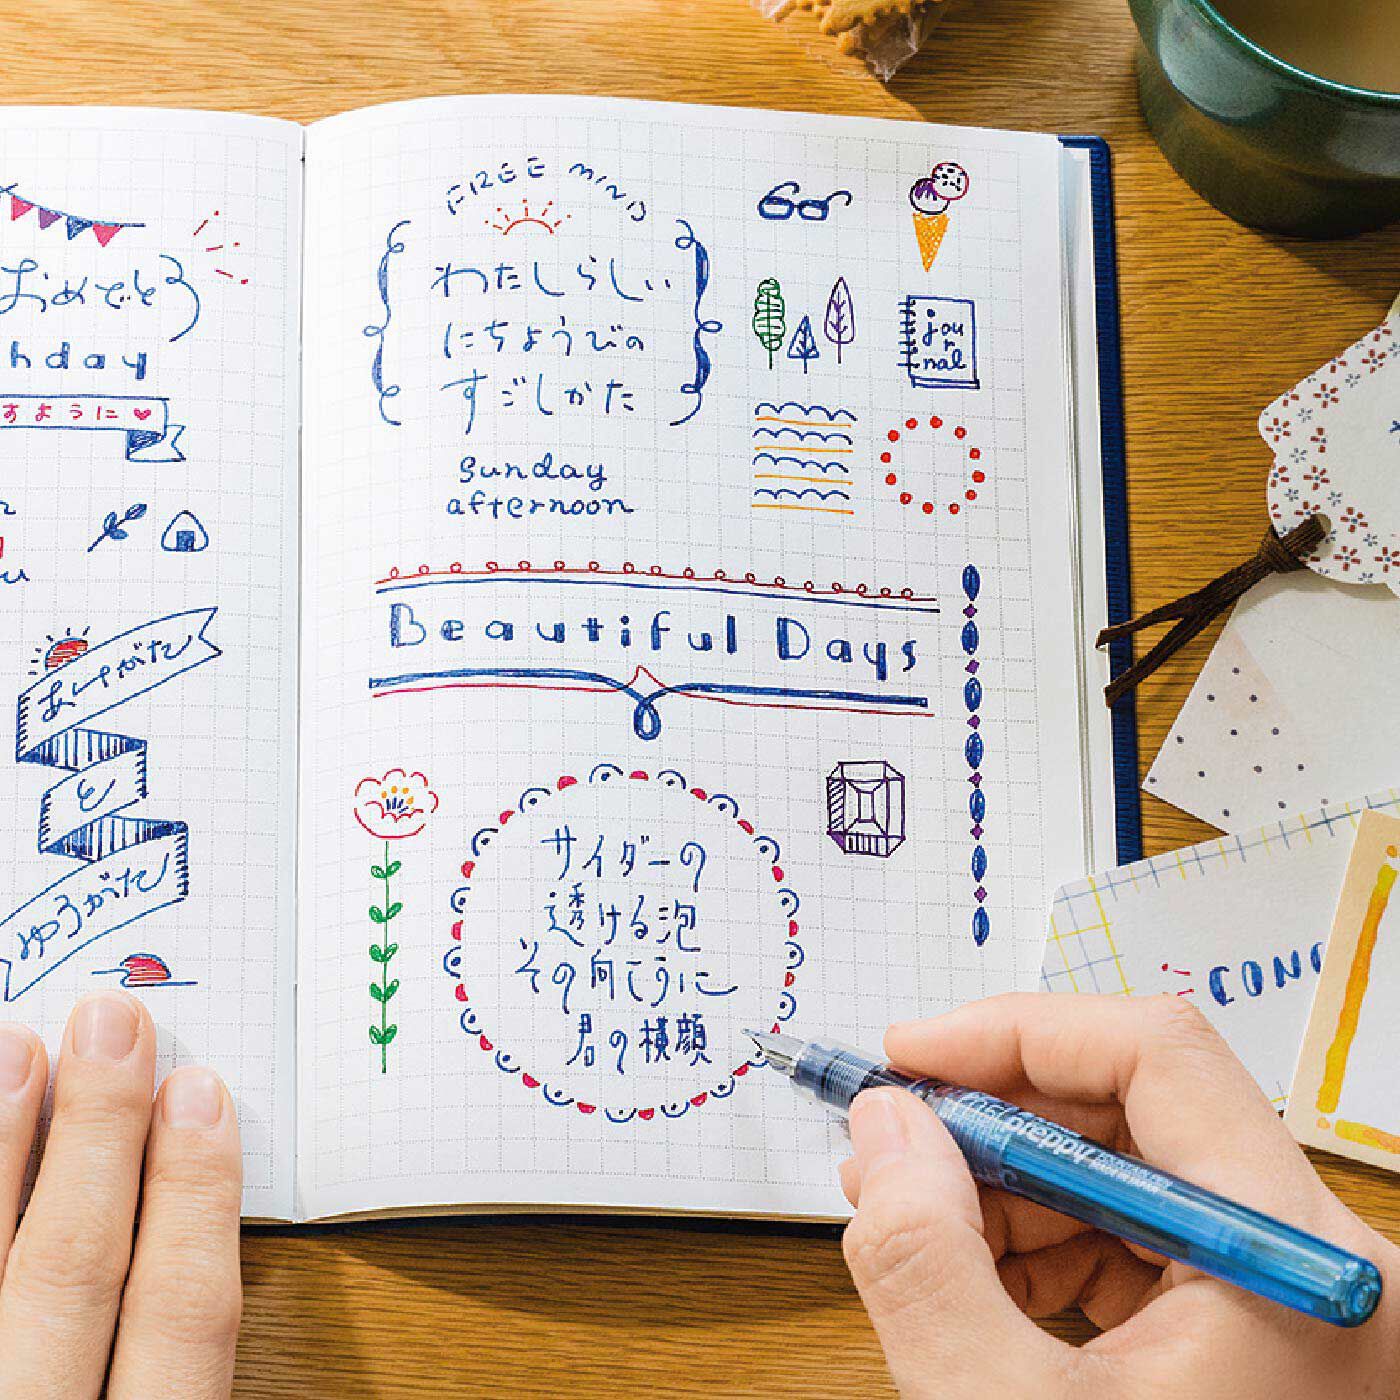 おめでと
hday
すように
あけがた
と
ゆうがた
FREE MIND
わたしらしい
にちようびの
すごしかた
Sunday
afternoon
jou
r
nal
Beautiful Days
サイダーの
透ける泡
その向こうに
君の横顔
CON